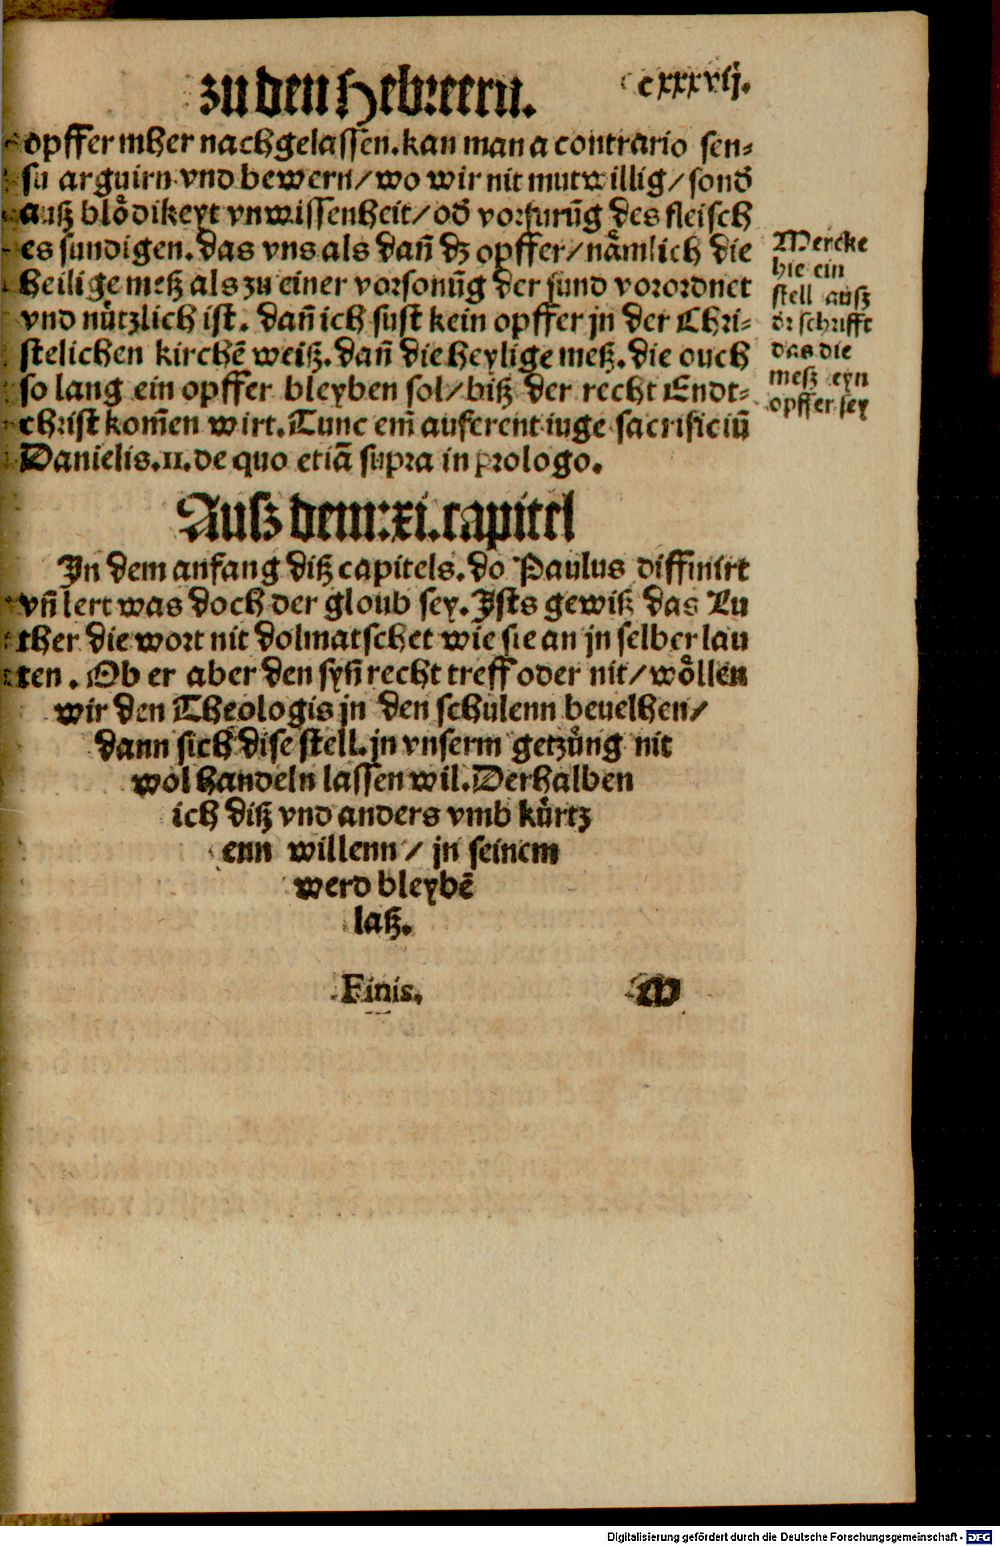 zu den Hebreern. cxxxvij.
opffer mher nachgelassen. kan man a contrario sen⸗
su arguirn vnd bewern/ wo wir nit mutwillig/ sond̄
auß blödikeyt vnwissenheit/ od̄ vorfurūg des fleisch
es sundigen. das vns als dañ dz opffer/ nämlich die
heilige meß als zu einer vorsonūg der sund vorordnet
vnd nützlich ist. dañ ich sust kein opffer jn der Chri⸗
stelichen kirchē weiß. dañ die heylige meß. die ouch
so lang ein opffer bleyben sol/ biß der recht Endt⸗
christ kom̄en wirt. Tunc em̄ auferent iuge sacrificiū
Danielis. 11. de quo etiā supra in prologo.
Mercke
hie ein
stell auß
dr schrifft
das die
meß eyn
opffer sey
Auß dem: xi. capitel
Jn dem anfang diß capitels. do Paulus diffinirt
vñ lert was doch der gloub sey. Jsts gewiß das Lu
ther die wort nit dolmatschet wie sie an jn selber lau
ten. Ob er aber den syñ recht treff oder nit/ wöllen
wir den Theologis jn den schulenn beuelhen/
dann sich dise stell. jn vnserm getzüng nit
wol handeln lassen wil. Derhalben
ich diß vnd anders vmb kürtz
enn willenn/ jn seinem
werd bleybē
laß.
Finis. M
Digitalisierung gefördert durch die Deutsche Forschungsgemeinschaft - DFG